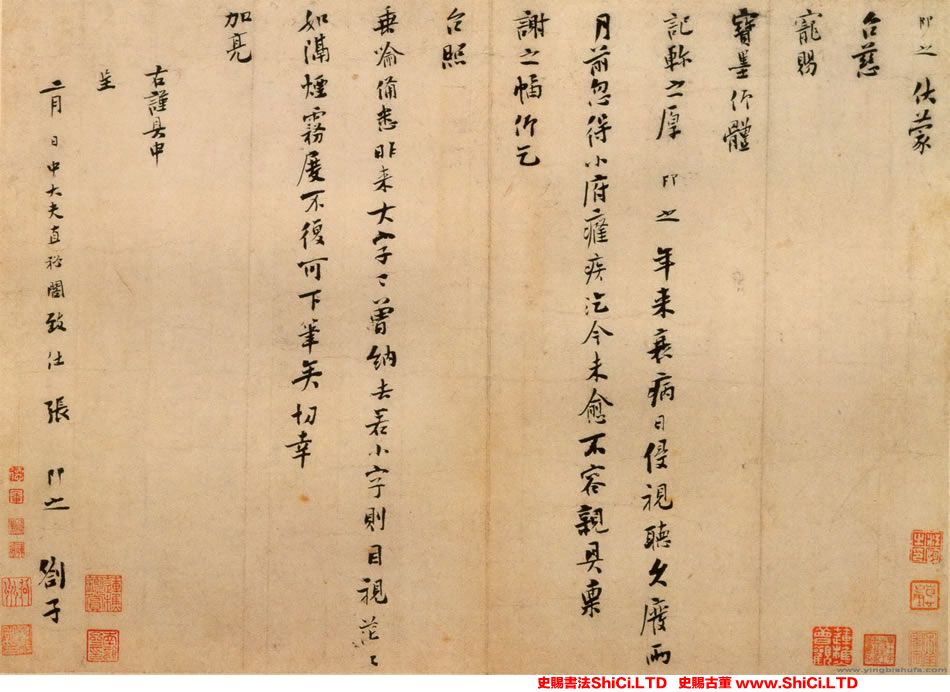 即之 伏蒙
台慈
寵賜
寶墨仰體
記軫之厚 即之 年来衰病日侵視聽久廢兩
月前忽得小府癰疾迄今未愈不容親具稟
謝之幅仰乞
台照
垂喻備悉昨来大字々曽納去若小字則目視茫々
如隔煙霧屡不復可下筆矣切幸
加亮
右謹具申
呈
二月 日中大夫直秘閣致仕 張 即之 劄子
www.yingbishufa.com
史賜書法ShiCi.LTD 史賜古董 www.ShiCi.LTD